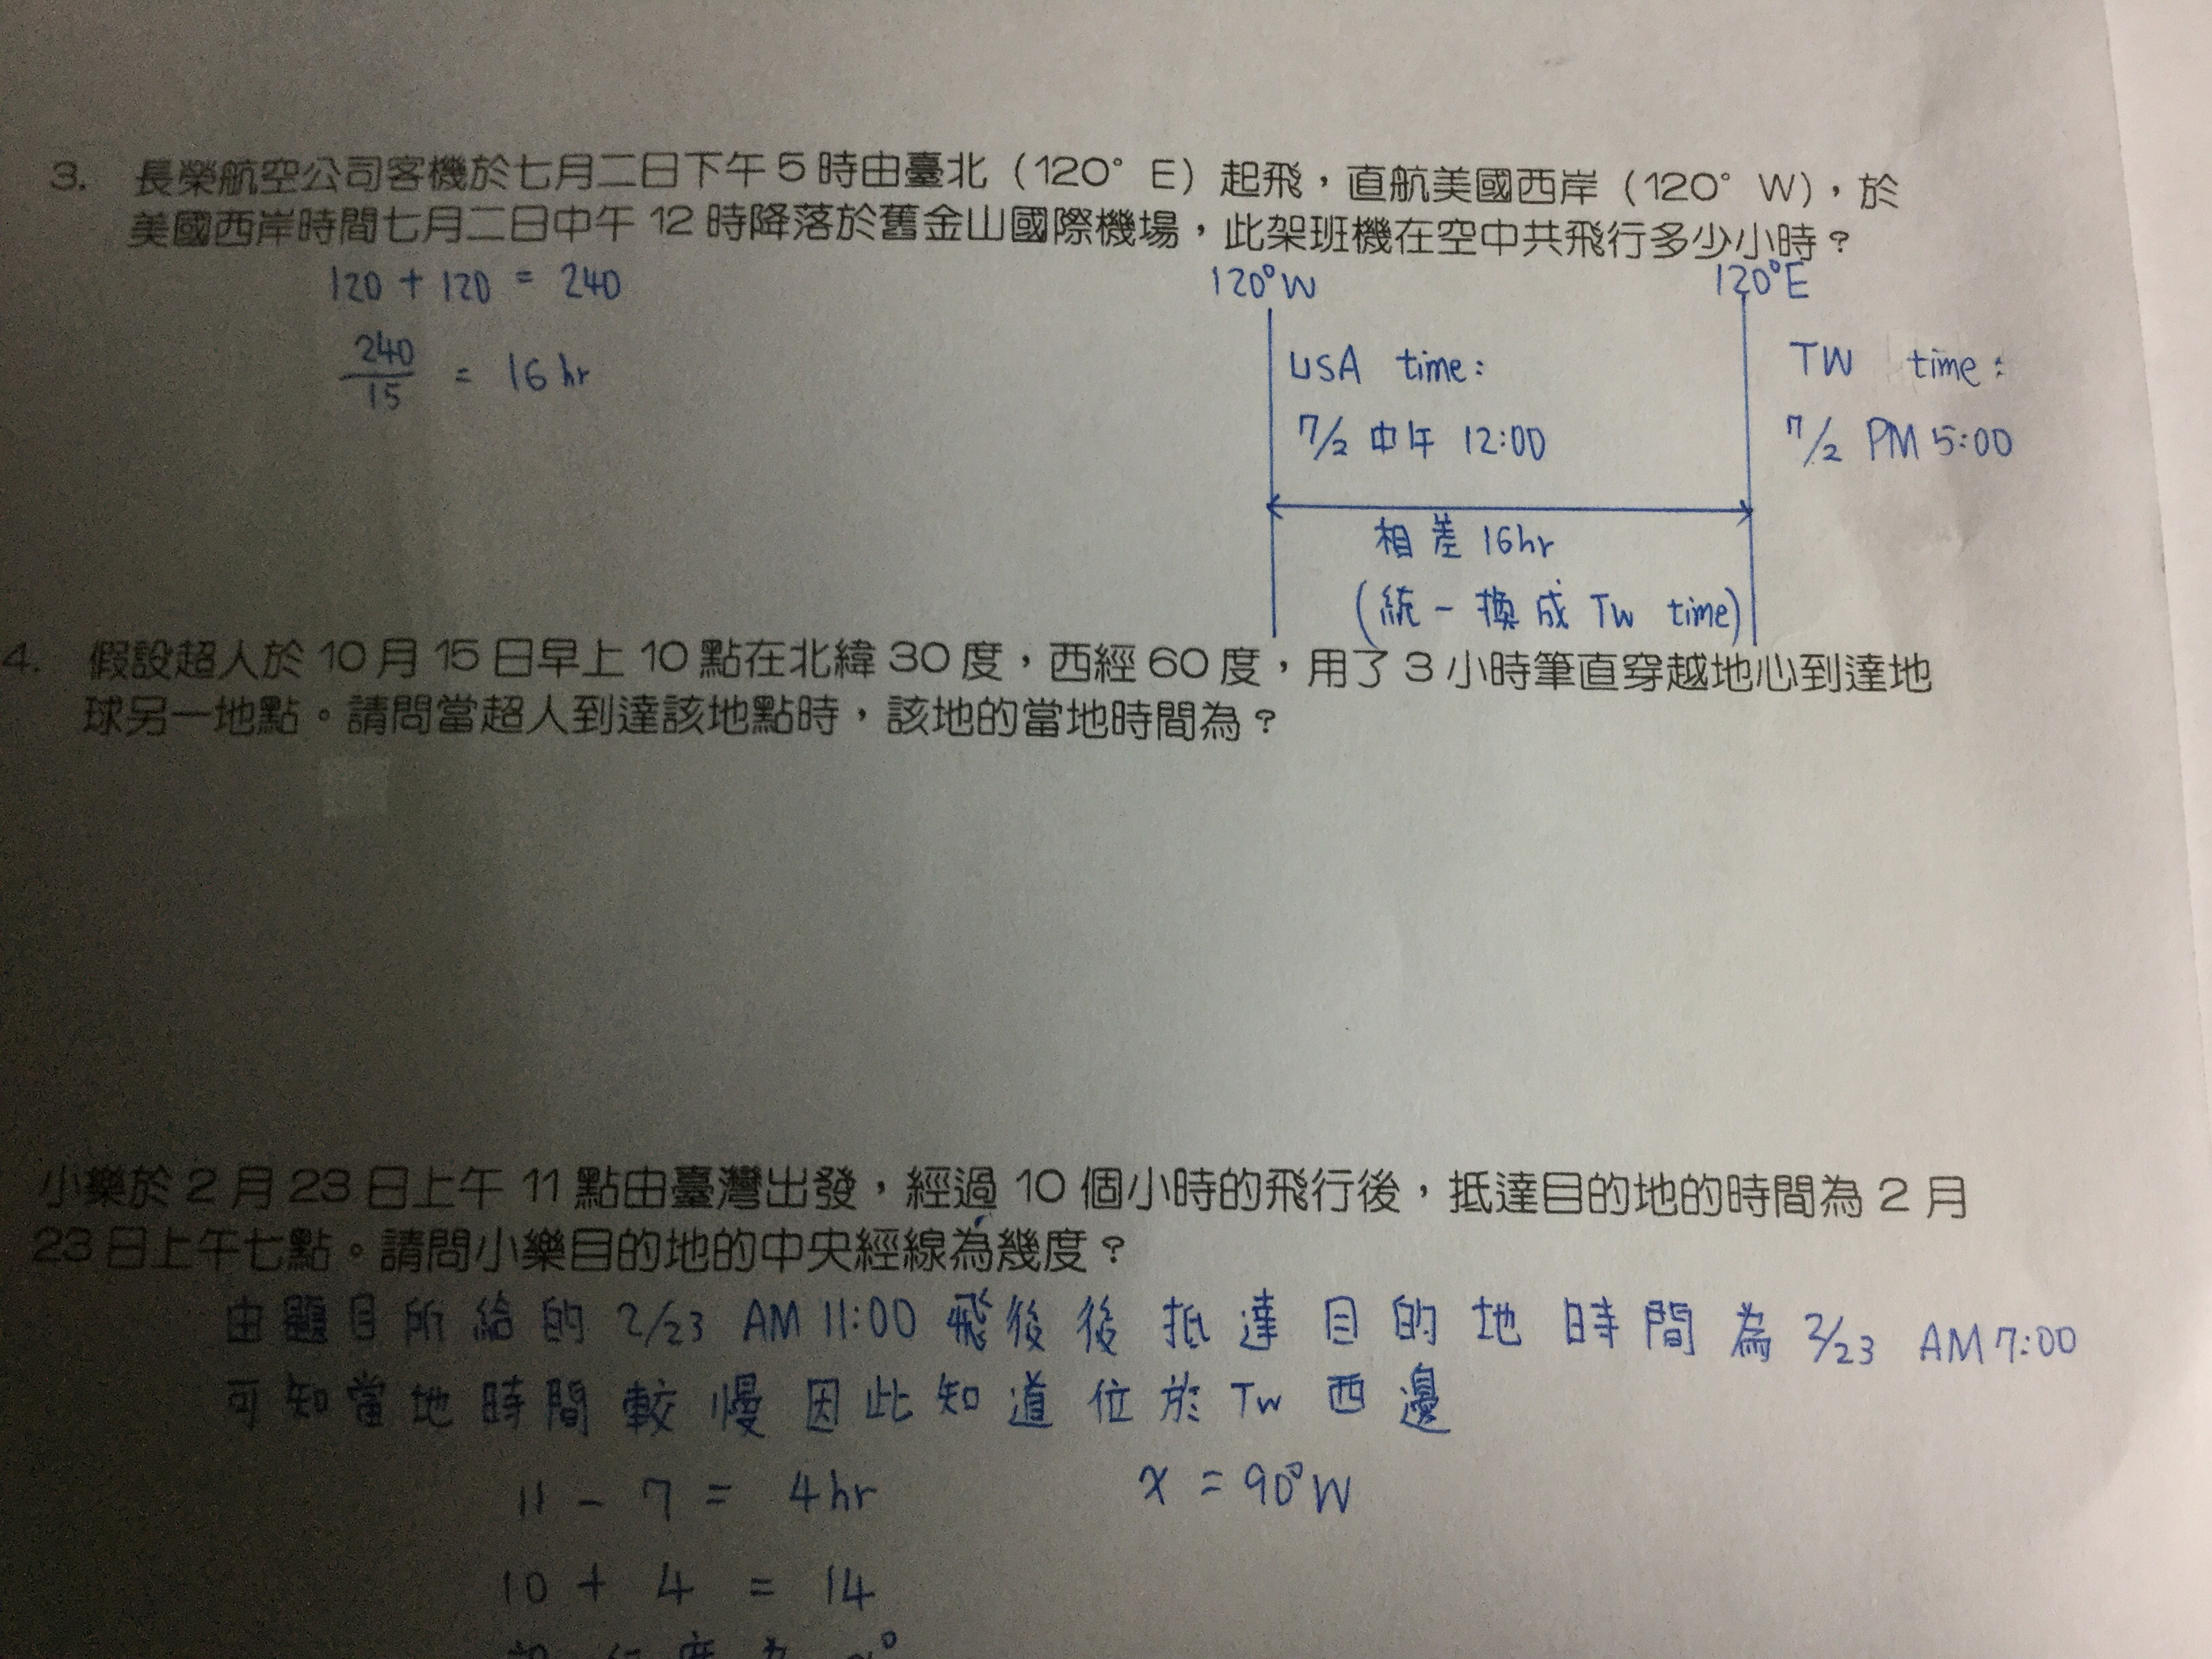 3. 長榮航空公司客機於七月二日下午5時由臺北（120° E）起飛，直航美國西岸（120° W），於
美國西岸時間七月二日中午12時降落於舊金山國際機場，此架班機在空中共飛行多少小時？
120 + 120 = 240
240/15 = 16 hr
120°W 120°E
USA time: TW time:
7/2 中午 12:00 7/2 PM 5:00
相差 16hr
(統一換成 TW time)
4. 假設超人於10月15日早上10點在北緯30度，西經60度，用了3小時筆直穿越地心到達地
球另一地點。請問當超人到達該地點時，該地的當地時間為？
小樂於2月23日上午11點由臺灣出發，經過10個小時的飛行後，抵達目的地的時間為2月
23日上午七點。請問小樂目的地的中央經線為幾度？
由題目所給的 2/23 AM 11:00 飛後後抵達目的地時間為 2/23 AM 7:00
可知當地時間較慢因此知道位於 TW 西邊
11 - 7 = 4hr x = 90°W
10 + 4 = 14